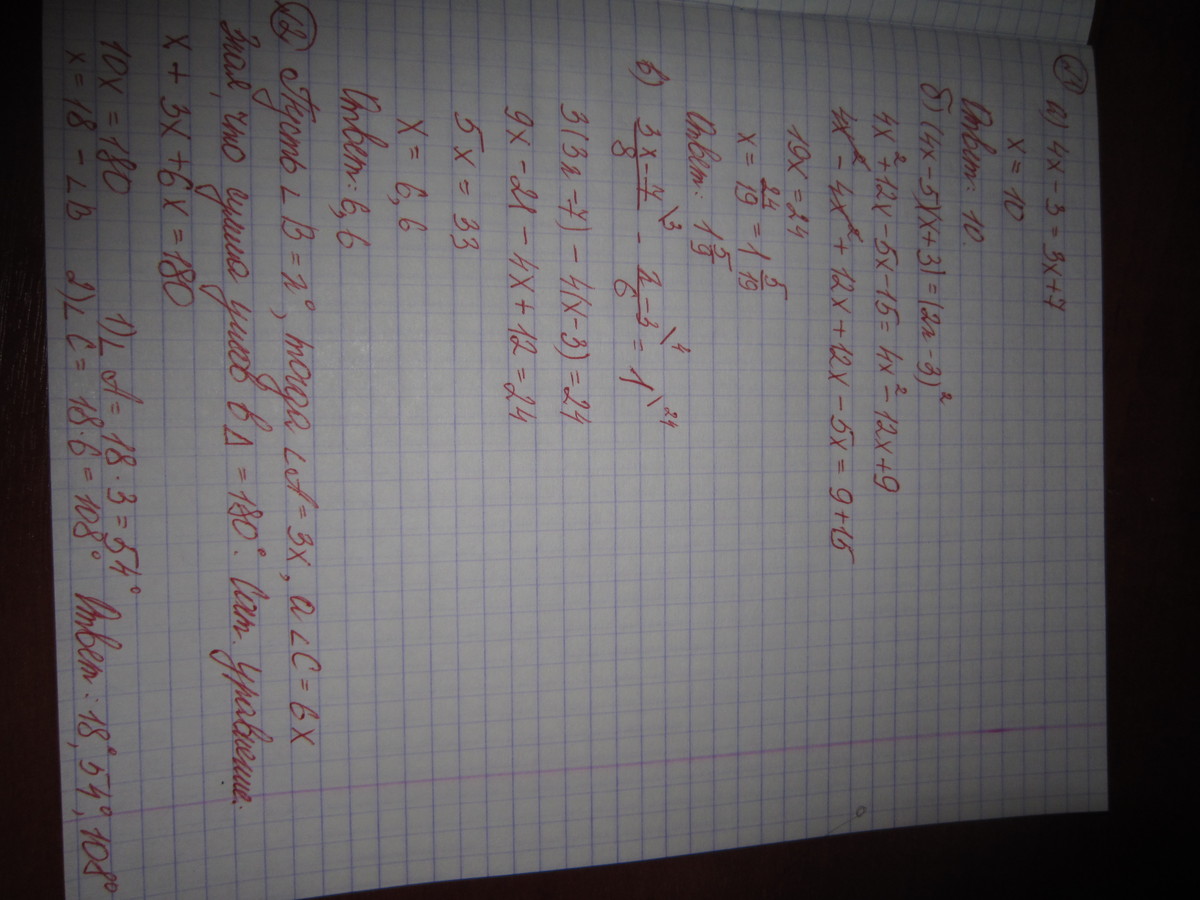 №1 а) 4x - 3 = 3x + 7
x = 10
Ответ: 10.
б) (4x - 5)(x + 3) = (2x - 3)²
4x² + 12x - 5x - 15 = 4x² - 12x + 9
4x² - 4x² + 12x + 12x - 5x = 9 + 15
19x = 24
x = 24/19 = 1 5/19
Ответ: 1 5/19
в) (3x - 7)/8 \3 - (x - 3)/6 \4 = 1 \24
3(3x - 7) - 4(x - 3) = 24
9x - 21 - 4x + 12 = 24
5x = 33
x = 6,6
Ответ: 6,6
№2 Пусть ∠B = x°, тогда ∠A = 3x, а ∠C = 6x
Зная, что сумма углов в Δ = 180°. Сост. уравнение.
x + 3x + 6x = 180
10x = 180 1) ∠A = 18 · 3 = 54°
x = 18 - ∠B 2) ∠C = 18 · 6 = 108° Ответ: 18°, 54°, 108°